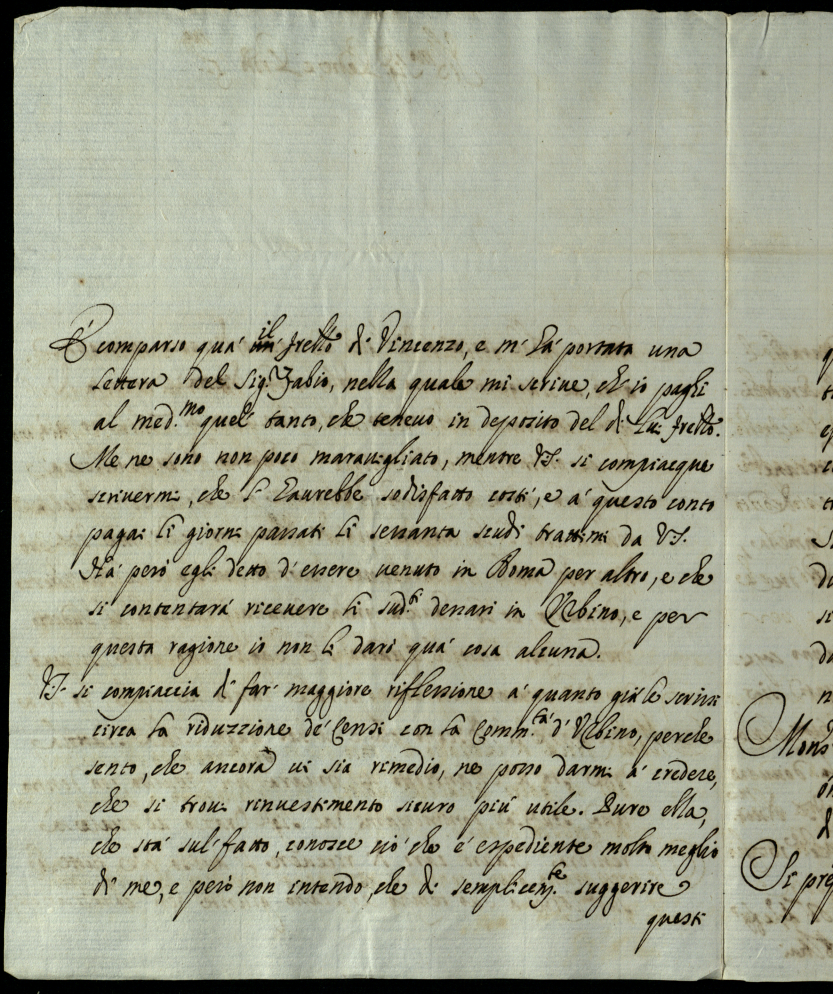 È comparso quà il frello di Vincenzo, e m'hà portata una
lettera del Sig.r Fabio, nella quale mi scrive, ch'io paghi
al med.mo quel tanto, che tenevo in deposito del di lui frello.
Me ne sono non poco maravigliato, mentre VS. si compiacque
scrivermi, che l'haurebbe sodisfatto costì, e à questo conto
pagai li giorni passati li sessanta scudi trattimi da VS.
Hà però egli detto d'essere venuto in Roma per altro, e che
si contentarà ricevere li sud.i denari in Urbino, e per
questa ragione io non li darò quà cosa alcuna.
VS. si compiaccia di far maggiore riflessione à quanto già le scrissi
circa la riduzzione de' Censi con la Comm.tà d'Urbino, perche
sento, che ancora vi sia remedio, ne posso darmi à credere,
che si trovi rinvestimento sicuro più utile. Pure ella,
che stà sul fatto, conosce ciò che è espediente molto meglio
di me, e però non intendo, che di semplicem.te suggerire
questi
Mons
di
Si pre